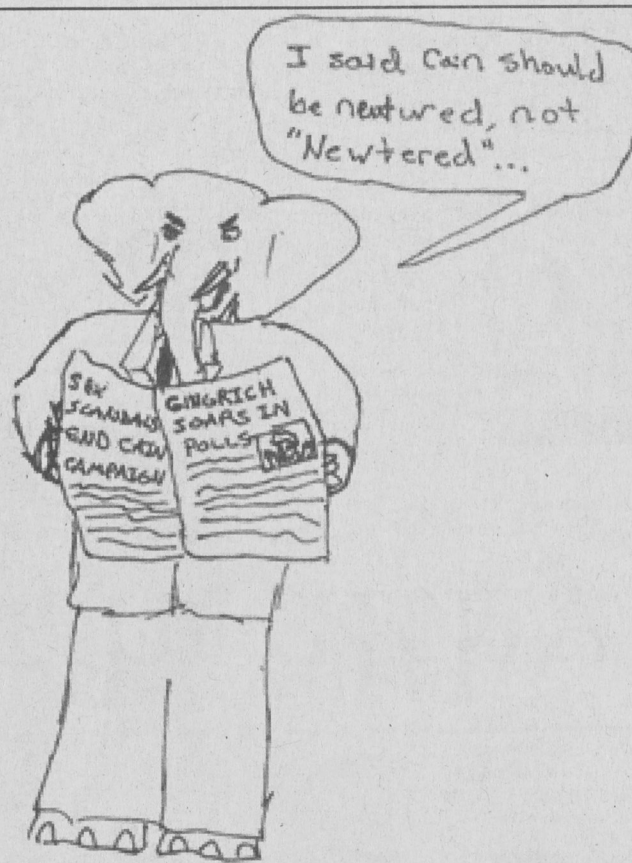 I said Cain should
be neutured, not
"Newtered"...
SEX
SCANDALS
END CAIN
CAMPAIGN
GINGRICH
SOARS IN
POLLS